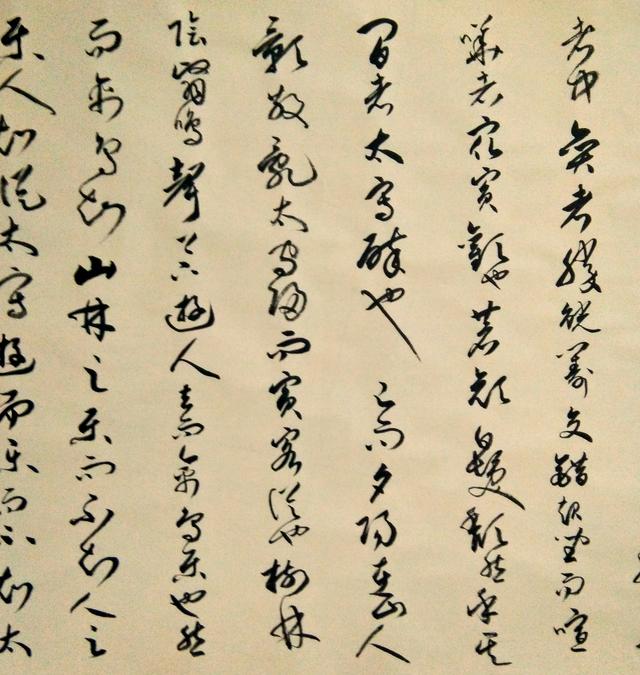 者中弈者勝觥籌交錯起坐而喧
嘩者衆賓歡也蒼顏白髮頹然乎其
間者太守醉也已而夕陽在山人
影散亂太守歸而賓客從也樹林
陰翳鳴聲上下遊人去而禽鳥樂也然
而禽鳥知山林之樂而不知人之
樂人知從太守遊而樂而不知太